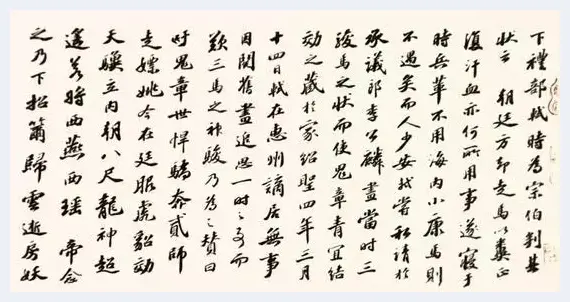 下禮部軾時為宗伯判其
狀云 朝廷方却走馬以糞正
復汗血亦何所用事遂寢于
時兵革不用海内小康馬則
不遇矣而人少安軾嘗私請於
承議郎李公麟畫當時三
駿馬之狀而使鬼章青宜結
効之藏於家紹聖四年三月
十四日軾在惠州謫居無事
因閱舊畫追思一時之事而
歎三馬之神駿乃為之贊曰
吁鬼章世悍驕奔貳師
走嫖姚今在廷服虎貂効
天驥立内朝八尺龍神超
遥若將西燕西瑶 帝念
之乃下招籋歸雲逝房妖